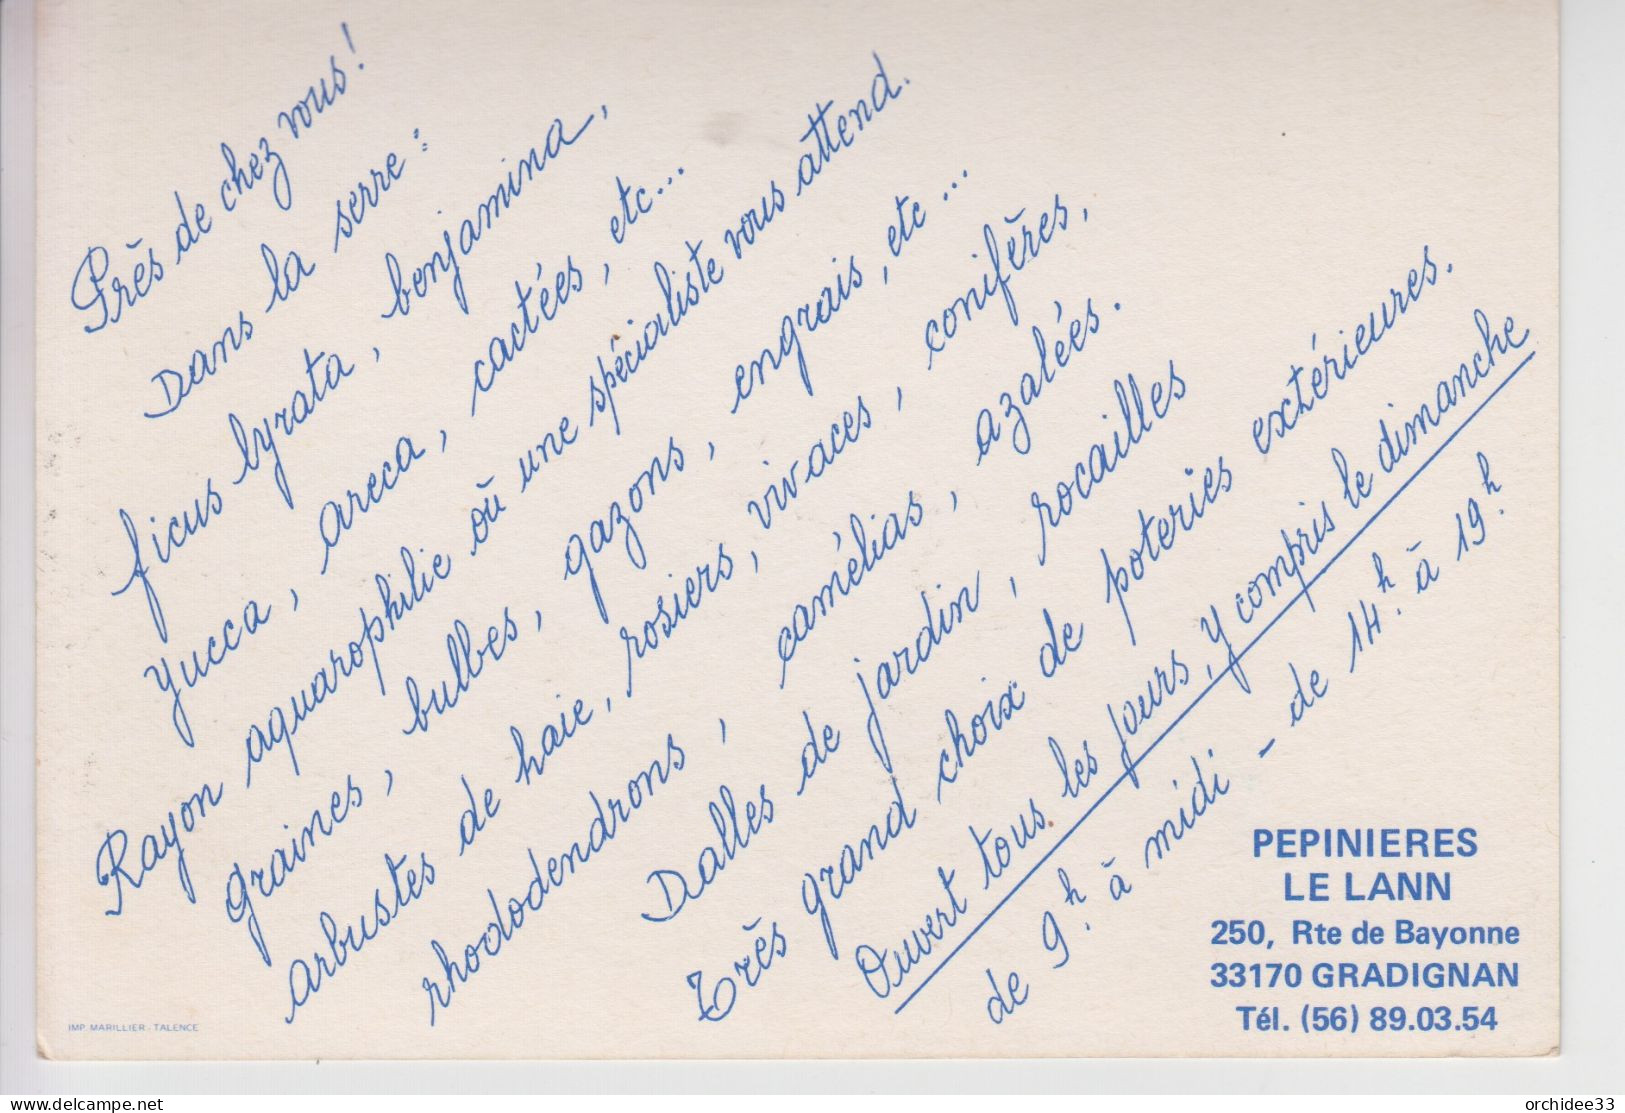 Près de chez vous!
Dans la serre :
ficus lyrata, benjamina,
yucca, areca, cactées, etc...
Rayon aquarophilie où une spécialiste vous attend.
graines, bulbes, gazons, engrais, etc...
arbustes de haie, rosiers, vivaces, conifères,
rhododendrons, camélias, azalées.
Dalles de jardin, rocailles
Très grand choix de poteries extérieures.
Ouvert tous les jours, y compris le dimanche
de 9h. à midi - de 14h. à 19h.
PEPINIERES
LE LANN
250, Rte de Bayonne
33170 GRADIGNAN
Tél. (56) 89.03.54
IMP. MARILLIER - TALENCE
delcampe.net
orchidee33